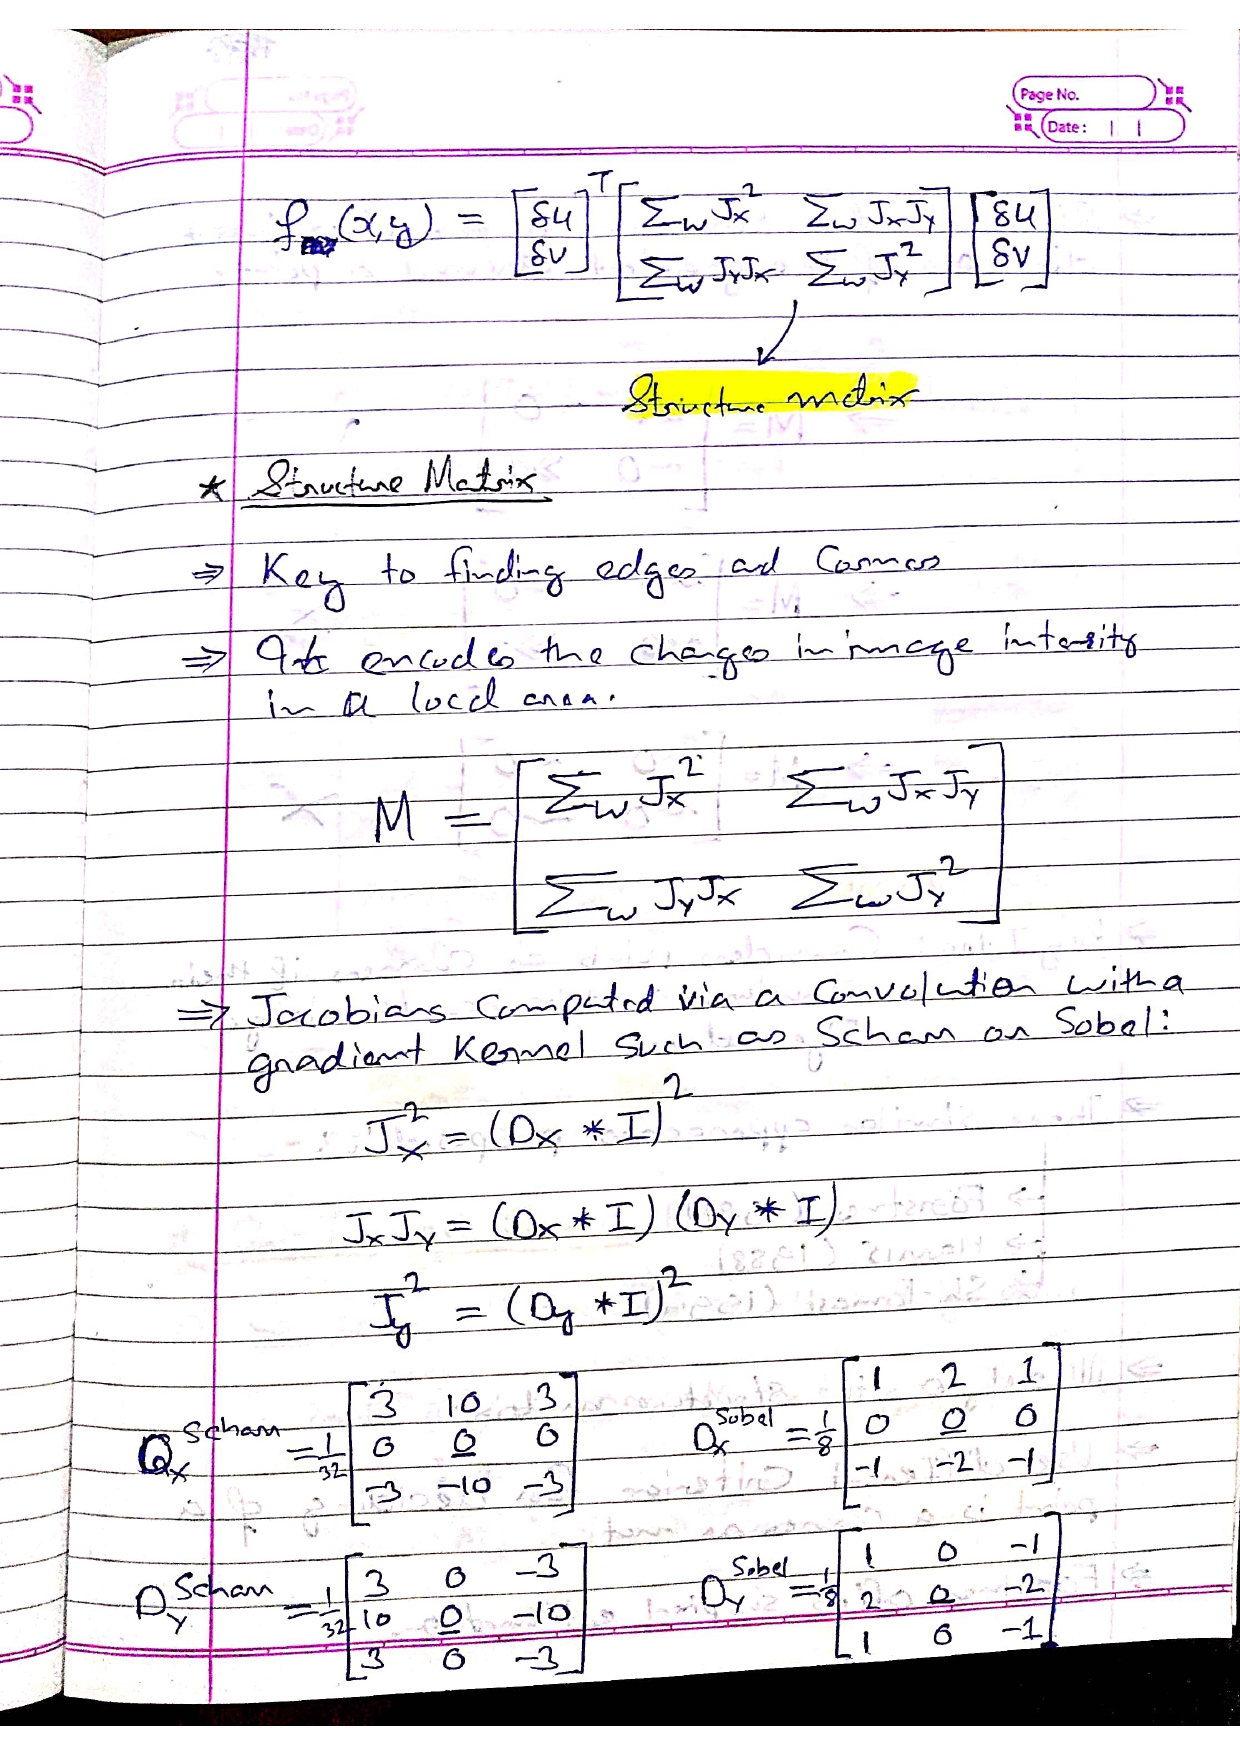 Page No.
Date: | |
f(x,y) = [δu δv]ᵀ [Σ_w J_x² Σ_w J_x J_y ; Σ_w J_y J_x Σ_w J_y²] [δu δv]
Structure matrix
* Structure Matrix
⇒ Key to finding edges and Corners
⇒ It encodes the changes in image intensity
in a local area.
M = [Σ_w J_x² Σ_w J_x J_y ; Σ_w J_y J_x Σ_w J_y²]
⇒ Jacobians Computed via a Convolution with a
gradient Kernel Such as Scharr or Sobel:
J_x² = (D_x * I)²
J_x J_y = (D_x * I) (D_y * I)
J_y² = (D_y * I)²
D_x^Scharr = 1/32 [3 10 3 ; 0 0 0 ; -3 -10 -3] D_x^Sobel = 1/8 [1 2 1 ; 0 0 0 ; -1 -2 -1]
D_y^Scharr = 1/32 [3 0 -3 ; 10 0 -10 ; 3 0 -3] D_y^Sobel = 1/8 [1 0 -1 ; 2 0 -2 ; 1 0 -1]